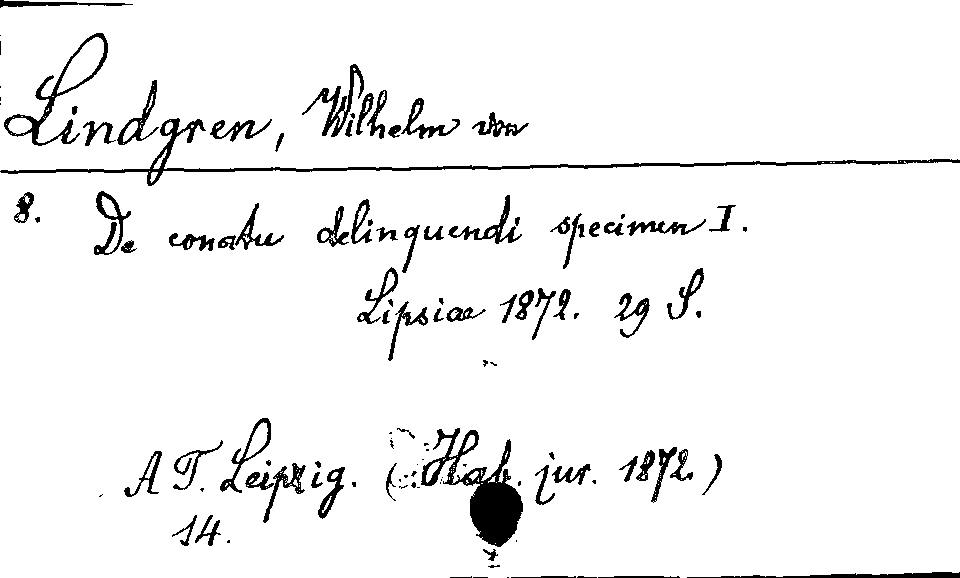 Lindgren, Wilhelm von
8. De conatu delinquendi specimen I.
Lipsiae 1872. 29 S.
A T. Leipzig. (Hab. jur. 1872.)
14.